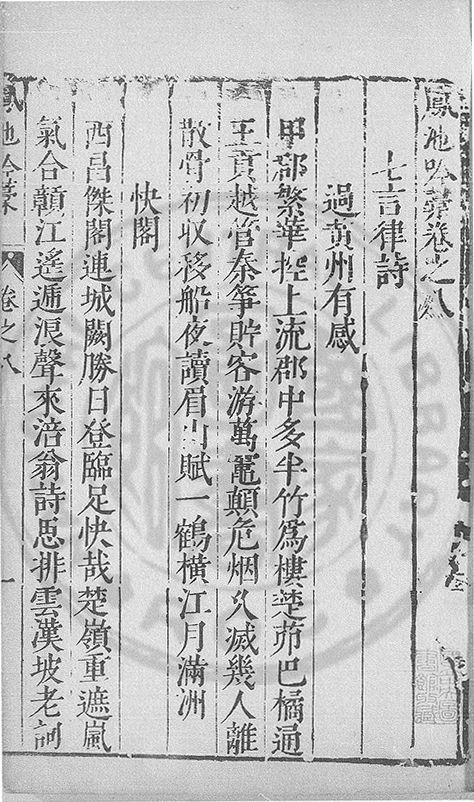 鳳池吟藁卷之八
七言律詩
過黃州有感
甲郡繁華控上流郡中多半竹爲樓楚茆巴橘通
王貢越管秦箏貯客游萬竈顛危烟久滅幾人離
散骨初収移船夜讀眉山賦一鶴橫江月滿洲
快閣
西昌傑閣連城闕勝日登臨足快哉楚嶺重遮嵐
氣合贑江遙遞浪聲來涪翁詩思排雲漢坡老詞
鳳池吟藁 卷之八 一